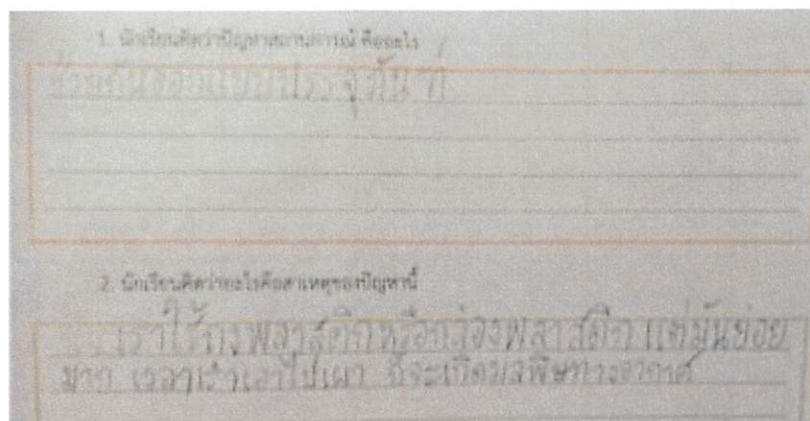 1. นักเรียนคิดว่าปัญหาสถานการณ์ คืออะไร
ช่วยกันออกแบบบรรจุภัณฑ์
2. นักเรียนคิดว่าอะไรคือสาเหตุของปัญหานี้
เราใช้ถุงพลาสติกหรือกล่องพลาสติก แต่มันย่อย
ยาก เวลาเราเอาไปเผา ก็จะเกิดมลพิษทางอากาศ